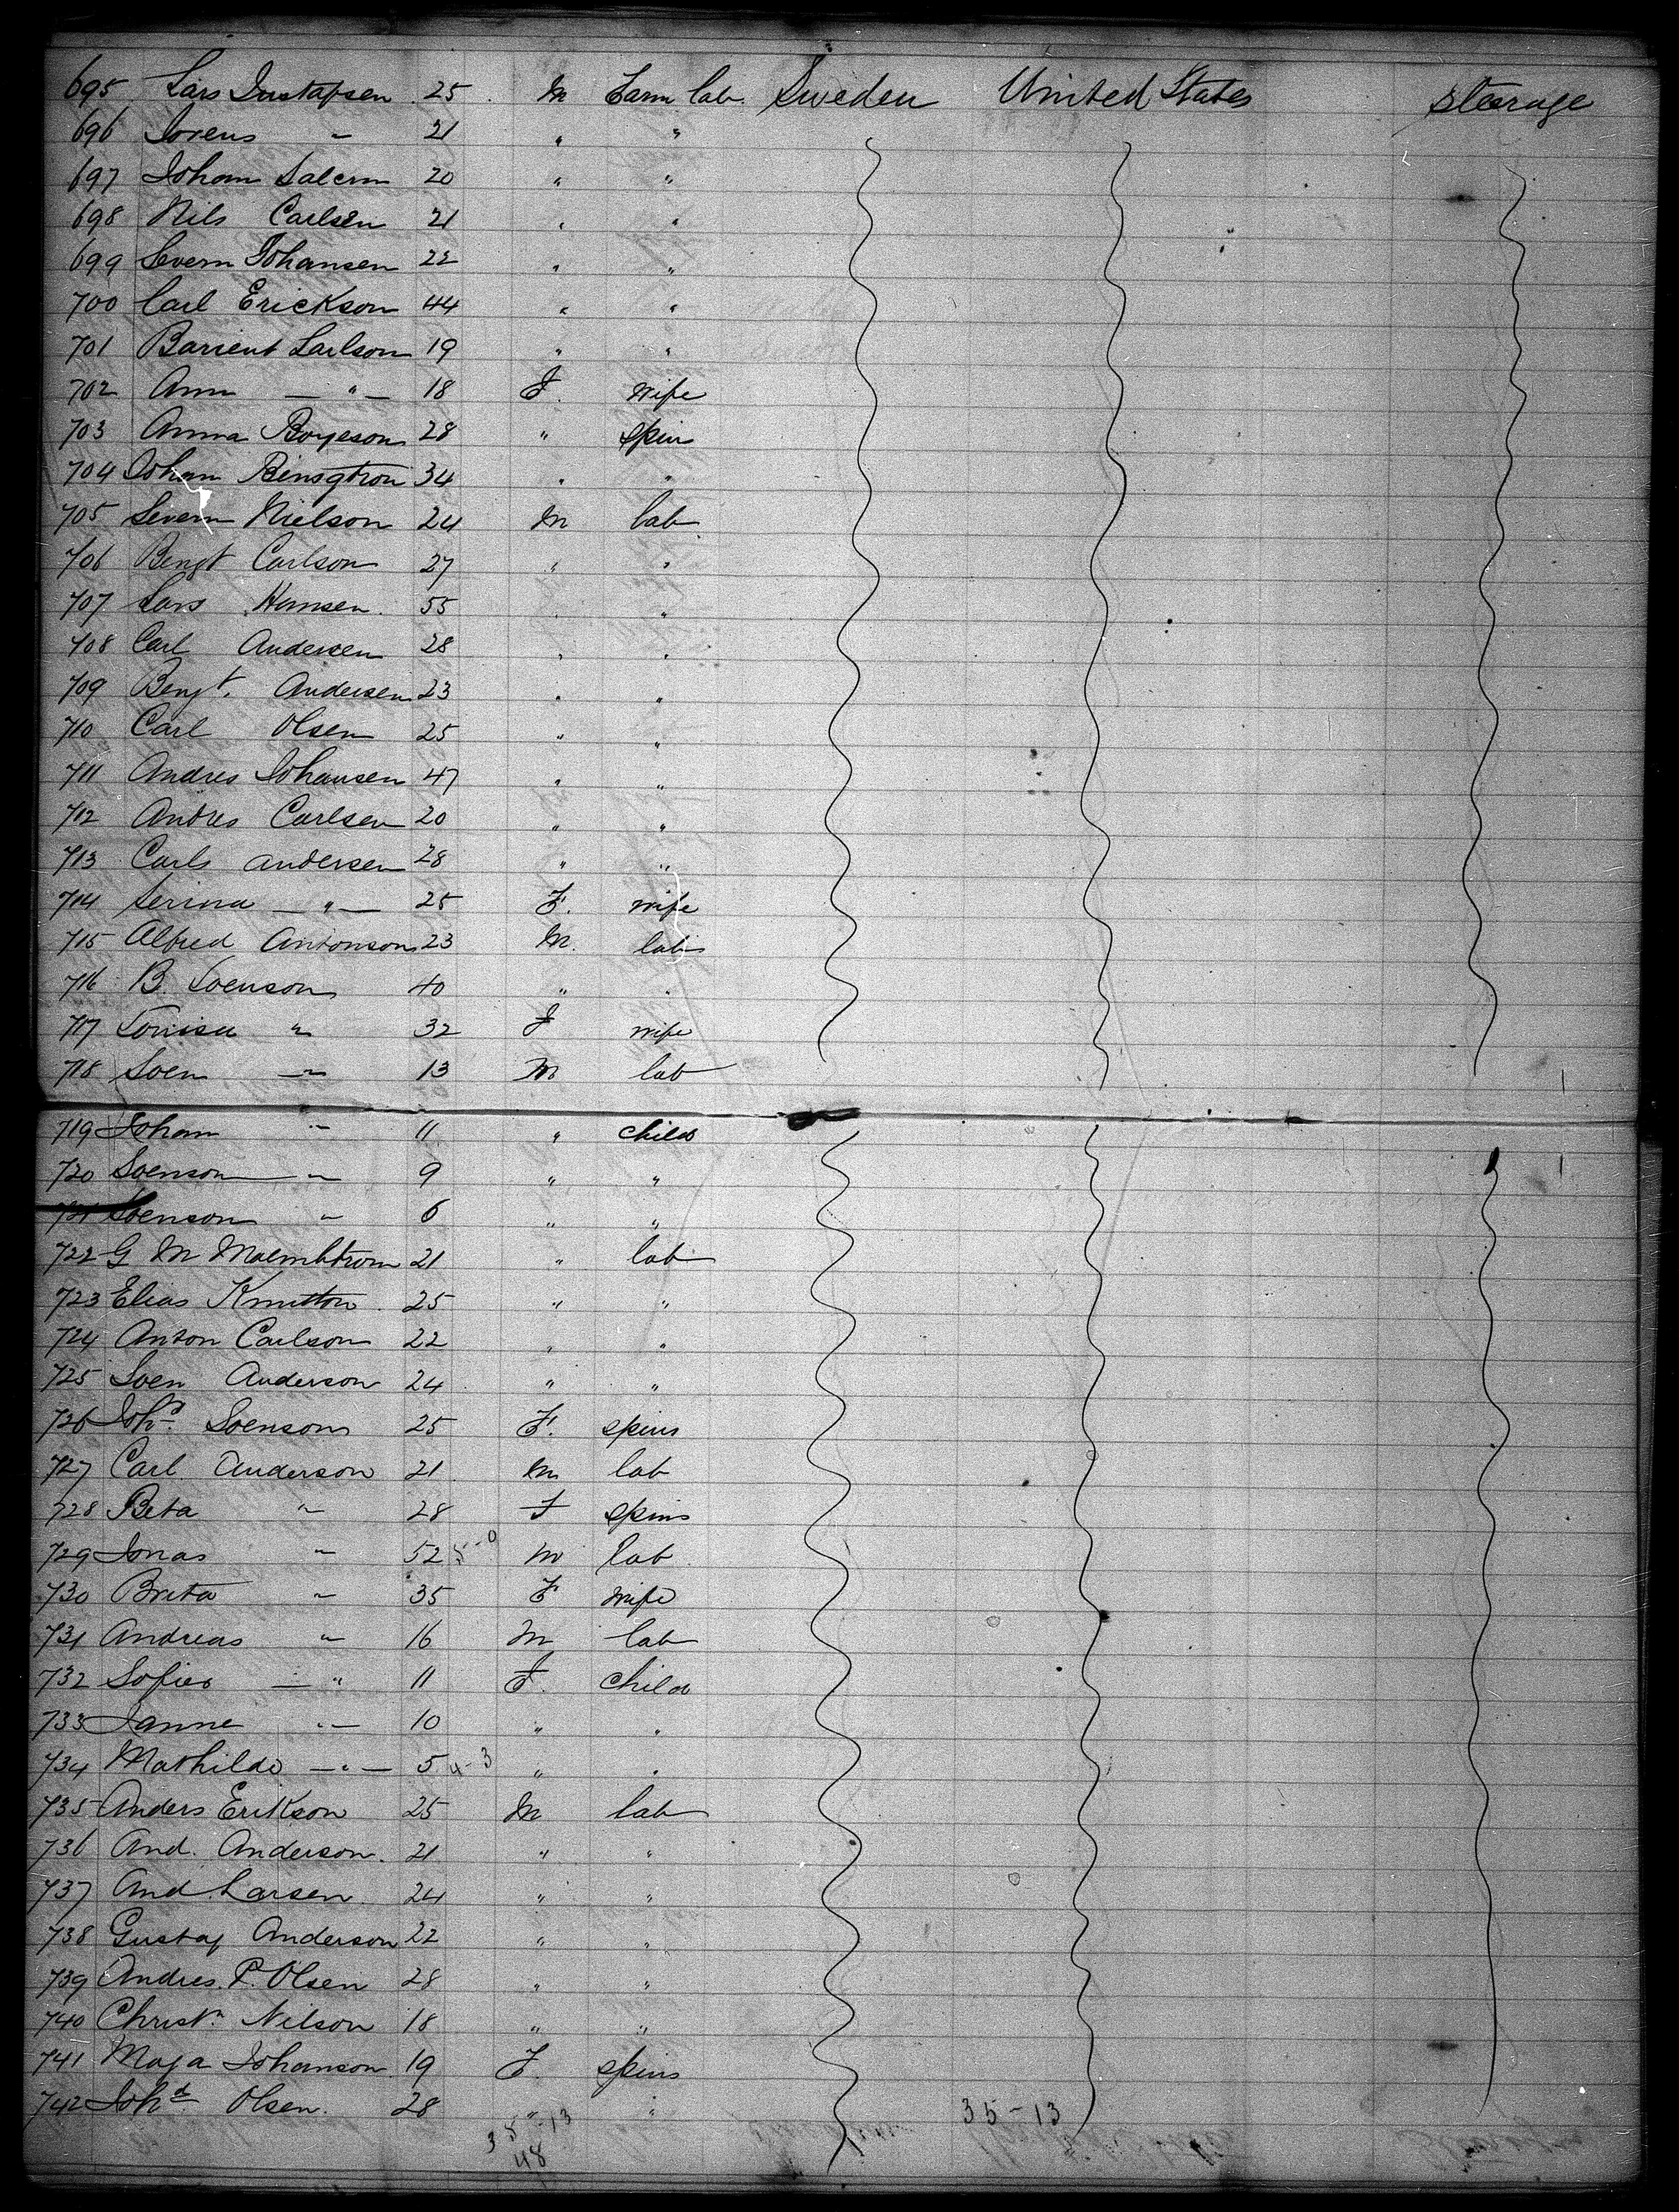 695 Lars Gustafsen 25 M Farm lab. Sweden United States Steerage
696 Sorens " 21 " "
697 Johan Salerm 20 " "
698 Nils Carlsen 21 " "
699 Severn Johansen 22 " "
700 Carl Erickson 44 " "
701 Barrent Larlson 19 " "
702 Ann — " — 18 F. wife
703 Anna Boryeson 28 " spin
704 Johan Binsgtron 34 " "
705 Severn Nielson 24 M lab
706 Bengt Carlson 27 " "
707 Lars Hansen. 55 " "
708 Carl Andersen 28 " "
709 Bengt. Andersen 23 " "
710 Carl Olsen 25 " "
711 Andres Johansen 47 " "
712 Andres Carlsen 20 " "
713 Carls Andersen 28 " "
714 Serina — " — 25 F. wife
715 Alfred Antonson 23 M. lab
716 B. Soenson 40 " "
717 Lovisa " 32 F wife
718 Soen — " 13 M lab
719 Johan " 11 " child
720 Soenson — " 9 " "
721 Soenson " 6 " "
722 G M Malmbtrom 21 " lab
723 Elias Knutton 25 " "
724 Anton Carlson 22 " "
725 Soen Anderson 24 " "
726 Joh. Soenson 25 F. spins
727 Carl Anderson 21 M lab
728 Beta " 28 F spins
729 Jonas " 52 5-0 M lab
730 Brita " 35 F wife
731 Andreas " 16 M lab
732 Sofies — " 11 F. child
733 Janne " — 10 " "
734 Mathilde — " — 5 4-3 " "
735 Anders Erikson 25 M lab
736 And. Anderson. 21 " "
737 And Larsen. 24 " "
738 Gustaf Anderson 22 " "
739 Andres. P. Olsen 28 " "
740 Christn. Nilson 18 " "
741 Maja Johanson 19 F. spins
742 Johd Olsen. 28 " "
35-13 35-13
48